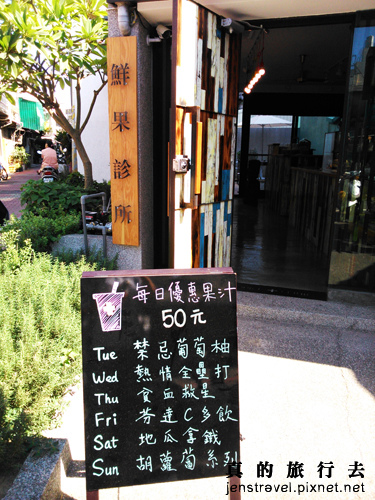 鮮果診所
每日優惠果汁
50元
Tue 禁忌葡萄柚
Wed 熱情全壘打
Thu 貪血救星
Fri 芬達C多飲
Sat 地瓜拿鐵
Sun 胡蘿蔔系列
真的旅行去
jenstravel.pixnet.net